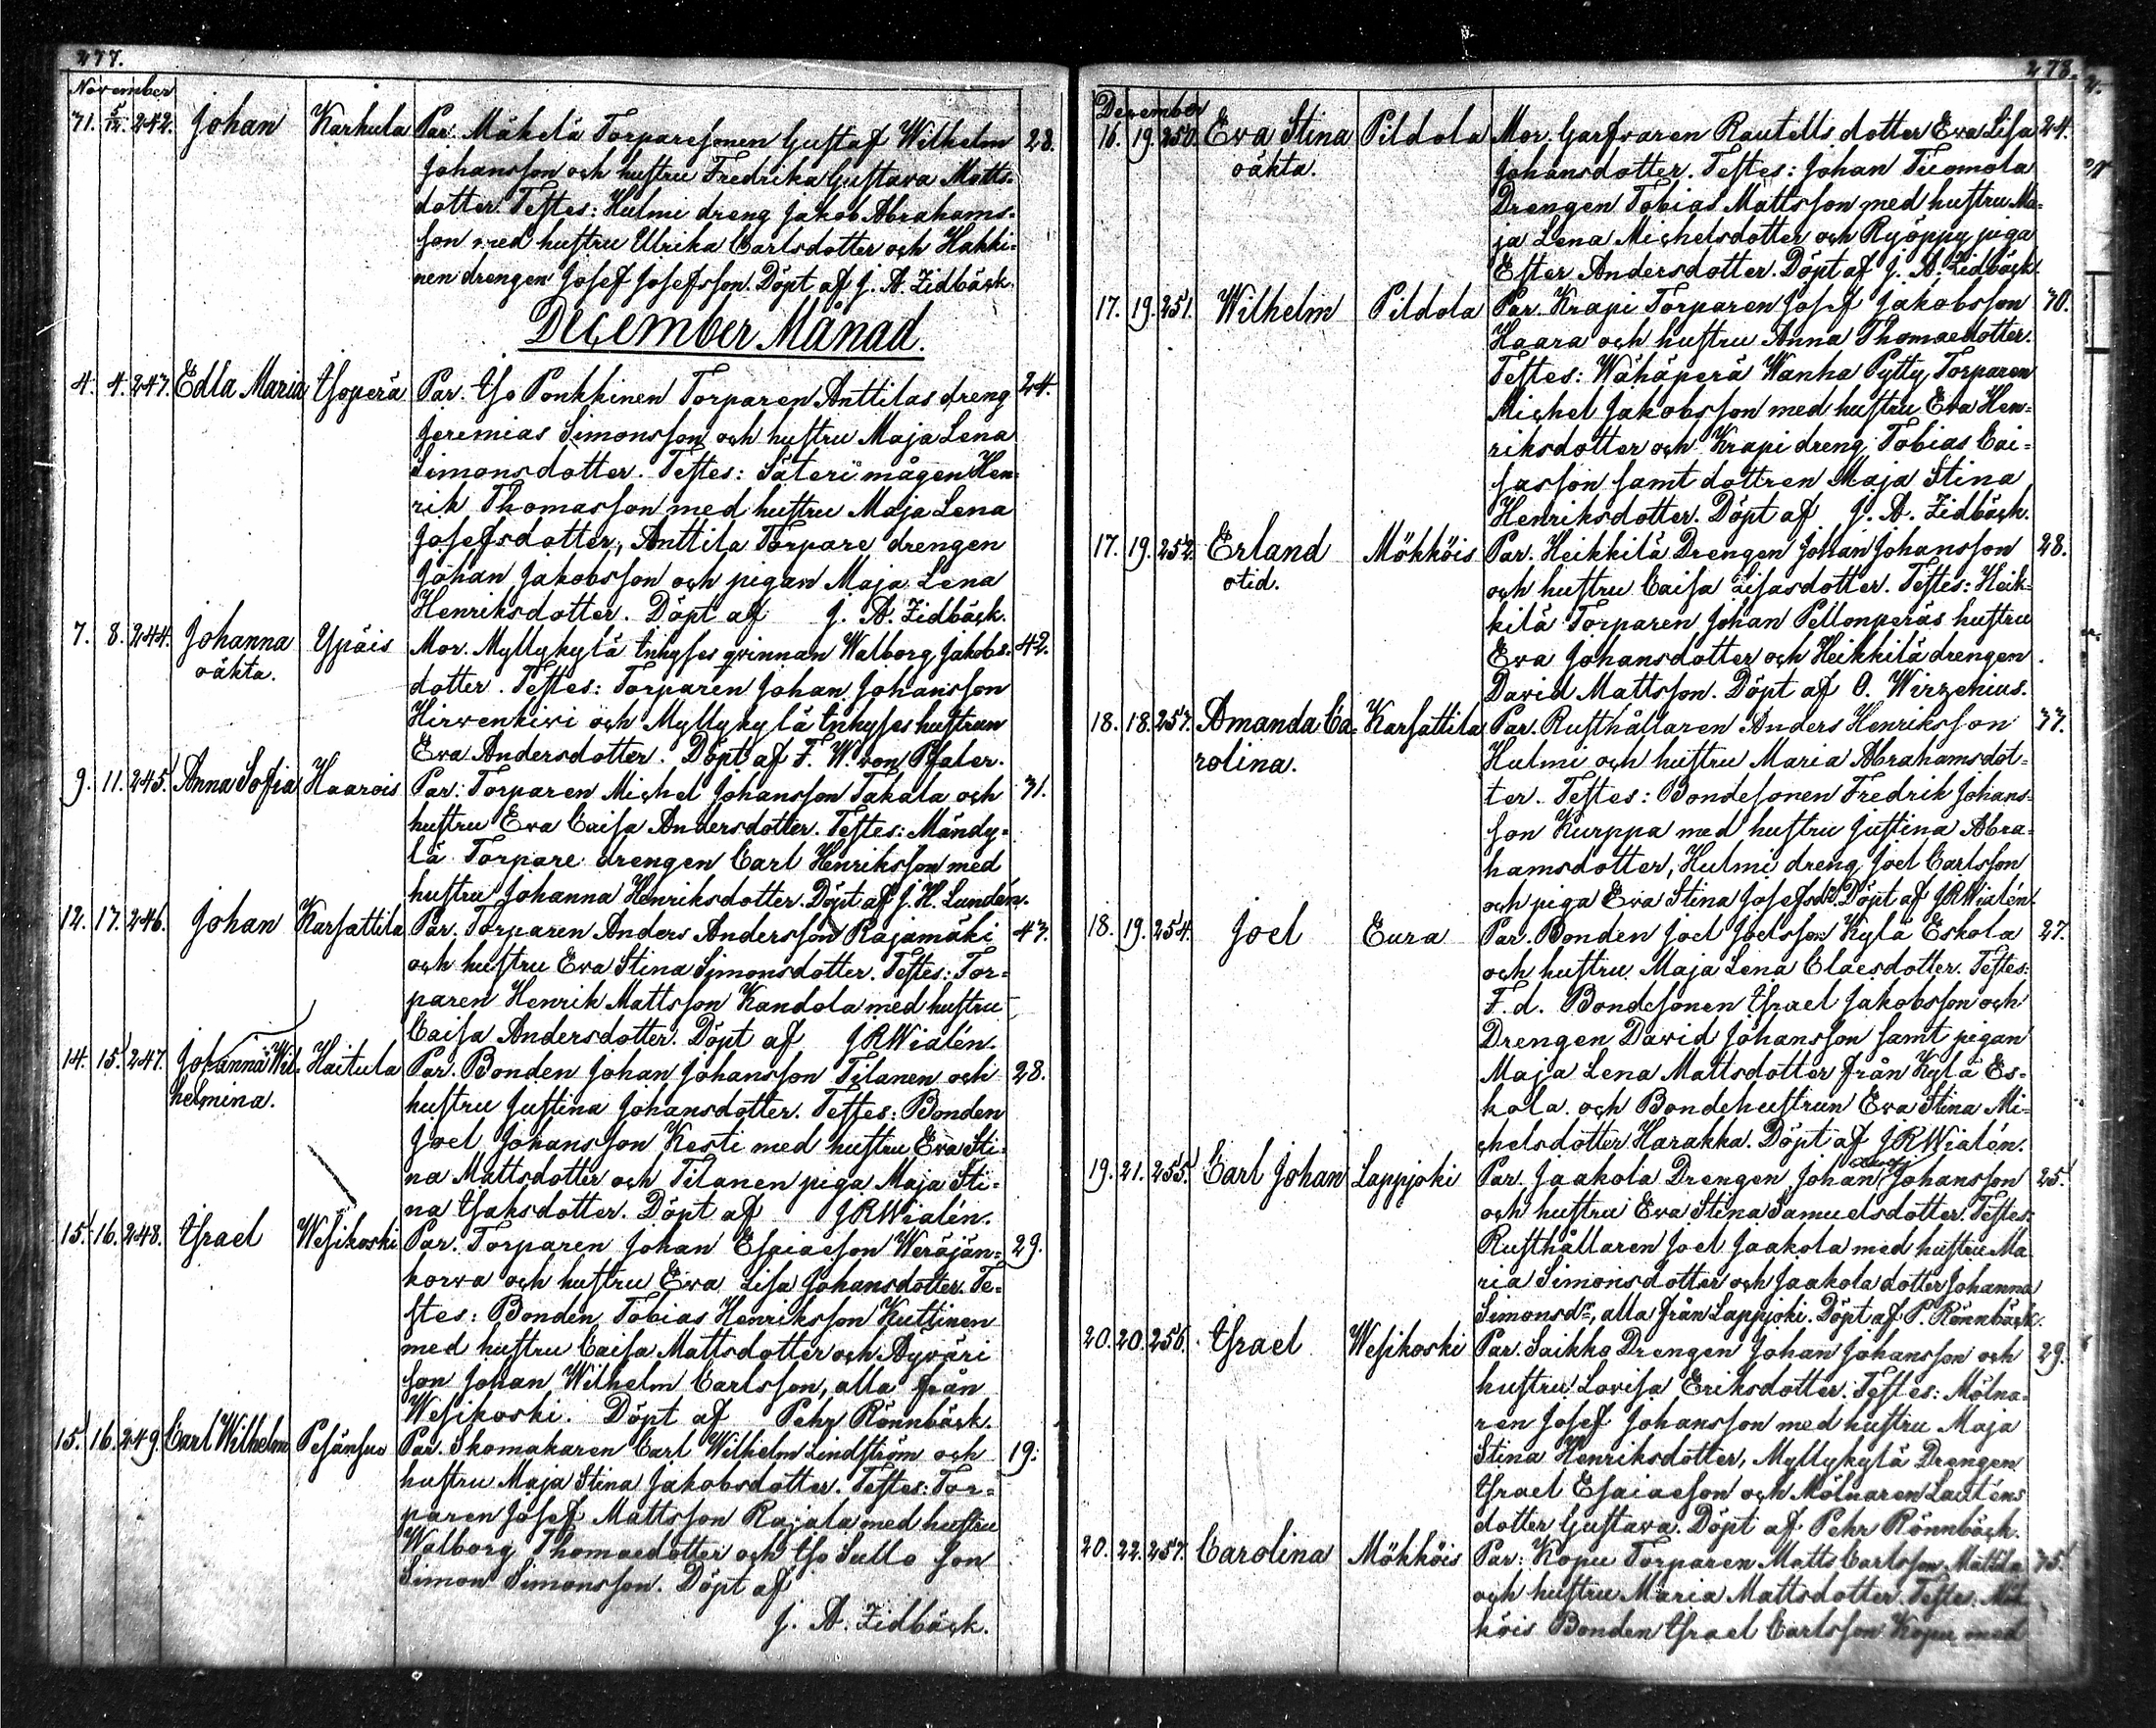 277.
November
31. 5/12. 242. Johan Karhula Par. Mäkelä Torparesonen Gustaf Wilhelm 28.
Johansson och hustru Fredrika Gustava Matts-
dotter. Testes: Hulmi dreng Jakob Abrahams-
son med hustru Ulrika Carlsdotter och Hakki-
nen drengen Josef Josefsson. Döpt af J. A. Zidbäck.
December Månad.
4. 4. 243. Edla Maria Isoperä Par. Iso Ponkkinen Torparen Anttilas dreng 24.
Jeremias Simonsson och hustru Maja Lena
Simonsdotter. Testes: Säteri mågen Hen-
rik Thomasson med hustru Maja Lena
Josefsdotter, Anttila Torpare drengen
Johan Jakobsson och pigan Maja Lena
Henriksdotter. Döpt af J. A. Zidbäck.
7. 8. 244. Johanna Ypäis Mor. Myllykylä Inhyses qvinnan Walborg Jakobs- 42.
oäkta. dotter. Testes: Torparen Johan Johansson
Hirvenkivi och Myllykylä Inhyses hustrun
Eva Andersdotter. Döpt af F. W. von Pfaler.
9. 11. 245. Anna Sofia Haarois Par: Torparen Michel Johansson Takala och 31.
hustru Eva Caisa Andersdotter. Testes: Mändy-
lä Torpare drengen Carl Henriksson med
hustru Johanna Henriksdotter. Döpt af J. H. Lundén.
12. 17. 246. Johan Karsattila Par. Torparen Anders Andersson Rajamäki 43.
och hustru Eva Stina Simonsdotter. Testes: Tor-
paren Henrik Mattsson Kandola med hustru
Caisa Andersdotter. Döpt af JRWialén.
14. 15. 247. Johanna Wil- Haitula Par. Bonden Johan Johansson Tilanen och 28.
helmina. hustru Justina Johansdotter. Testes: Bonden
Joel Johansson Kesti med hustru Eva Sti-
na Mattsdotter och Tilanen piga Maja Sti-
na Isaksdotter. Döpt af JRWialén.
15. 16. 248. Israel Wesikoski Par. Torparen Johan Esaiasson Weräjän- 29.
korva och hustru Eva Lisa Johansdotter. Te-
stes: Bonden Tobias Henriksson Kuttinen
med hustru Caisa Mattsdotter och Äyväri
son Johan Wilhelm Carlsson, alla från
Wesikoski. Döpt af Pehr Rönnbäck.
15. 16. 249. Carl Wilhelm Pesänsuo Par. Skomakaren Carl Wilhelm Lindström och 19.
hustru Maja Stina Jakobsdotter. Testes: Tor-
paren Josef Mattsson Rajala med hustru
Walborg Thomaedotter och Iso Sullo son
Simon Simonsson. Döpt af
J. A. Zidbäck.
278.
December
16. 19. 250. Eva Stina Pildola Mor. Garfvaren Rautells dotter Eva Lisa 24.
oäkta. Johansdotter. Testes: Johan Tuomola
Drengen Tobias Mattsson med hustru Ma-
ja Lena Michelsdotter och Ryöppy piga
Ester Andersdotter. Döpt af J. A. Zidbäck.
17. 19. 251. Wilhelm Pildola Par. Krapi Torparen Josef Jakobsson 30.
Haara och hustru Anna Thomaedotter.
Testes: Wähäperä Wanha Pytty Torparen
Michel Jakobsson med hustru Eva Hen-
riksdotter och Krapi dreng Tobias Cai-
sasson samt dottren Maja Stina
Henriksdotter. Döpt af J. A. Zidbäck.
17. 19. 252. Erland Mökköis Par. Heikkilä Drengen Johan Johansson 28.
otid. och hustru Caisa Lisasdotter. Testes: Heik-
kilä Torparen Johan Pellonperäs hustru
Eva Johansdotter och Heikkilä drengen
David Mattsson. Döpt af O. Wirzenius.
18. 18. 253. Amanda Ca- Karsattila Par. Rusthållaren Anders Henriksson 33.
rolina. Hulmi och hustru Maria Abrahamsdot-
ter. Testes: Bondesonen Fredrik Johans-
son Kurppa med hustru Justina Abra-
hamsdotter, Hulmi dreng Joel Carlsson
och piga Eva Stina Josefsdr. Döpt af JRWialén.
18. 19. 254. Joel Eura Par. Bonden Joel Joelsson Kylä Eskola 27.
och hustru Maja Lena Claesdotter. Testes:
F. d. Bondesonen Israel Jakobsson och
Drengen David Johansson samt pigan
Maja Lena Mattsdotter från Kylä Es-
kola och Bondehustrun Eva Stina Mi-
chelsdotter Harakka. Döpt af JRWialén.
19. 21. 255. Carl Johan Lappjoki Par. Jaakola Drengen Johan Johansson 25.
och hustru Eva Stina Samuelsdotter. Testes:
Rusthållaren Joel Jaakola med hustru Ma
ria Simonsdotter och Jaakola dotter Johanna
Simonsdr, alla från Lappjoki. Döpt af P. Rönnbäck.
20. 20. 256. Israel Wesikoski Par. Saikko Drengen Johan Johansson och 29.
hustru Lovisa Eriksdotter. Testes: Mölna-
ren Josef Johansson med hustru Maja
Stina Henriksdotter, Myllykylä Drengen
Israel Esaiasson och Mölnaren Lauténs
dotter Gustava. Döpt af Pehr Rönnbäck.
20. 22. 257. Carolina Mökköis Par: Kopu Torparen Matts Carlsson Mattila 35.
och hustru Maria Mattsdotter. Testes: Mök
köis Bonden Israel Carlsson Kopu med